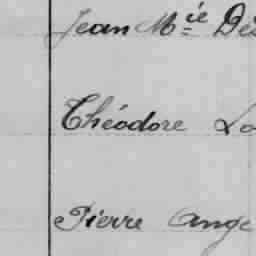 Jean Mie Dés
Théodore Lo
Pierre Ange